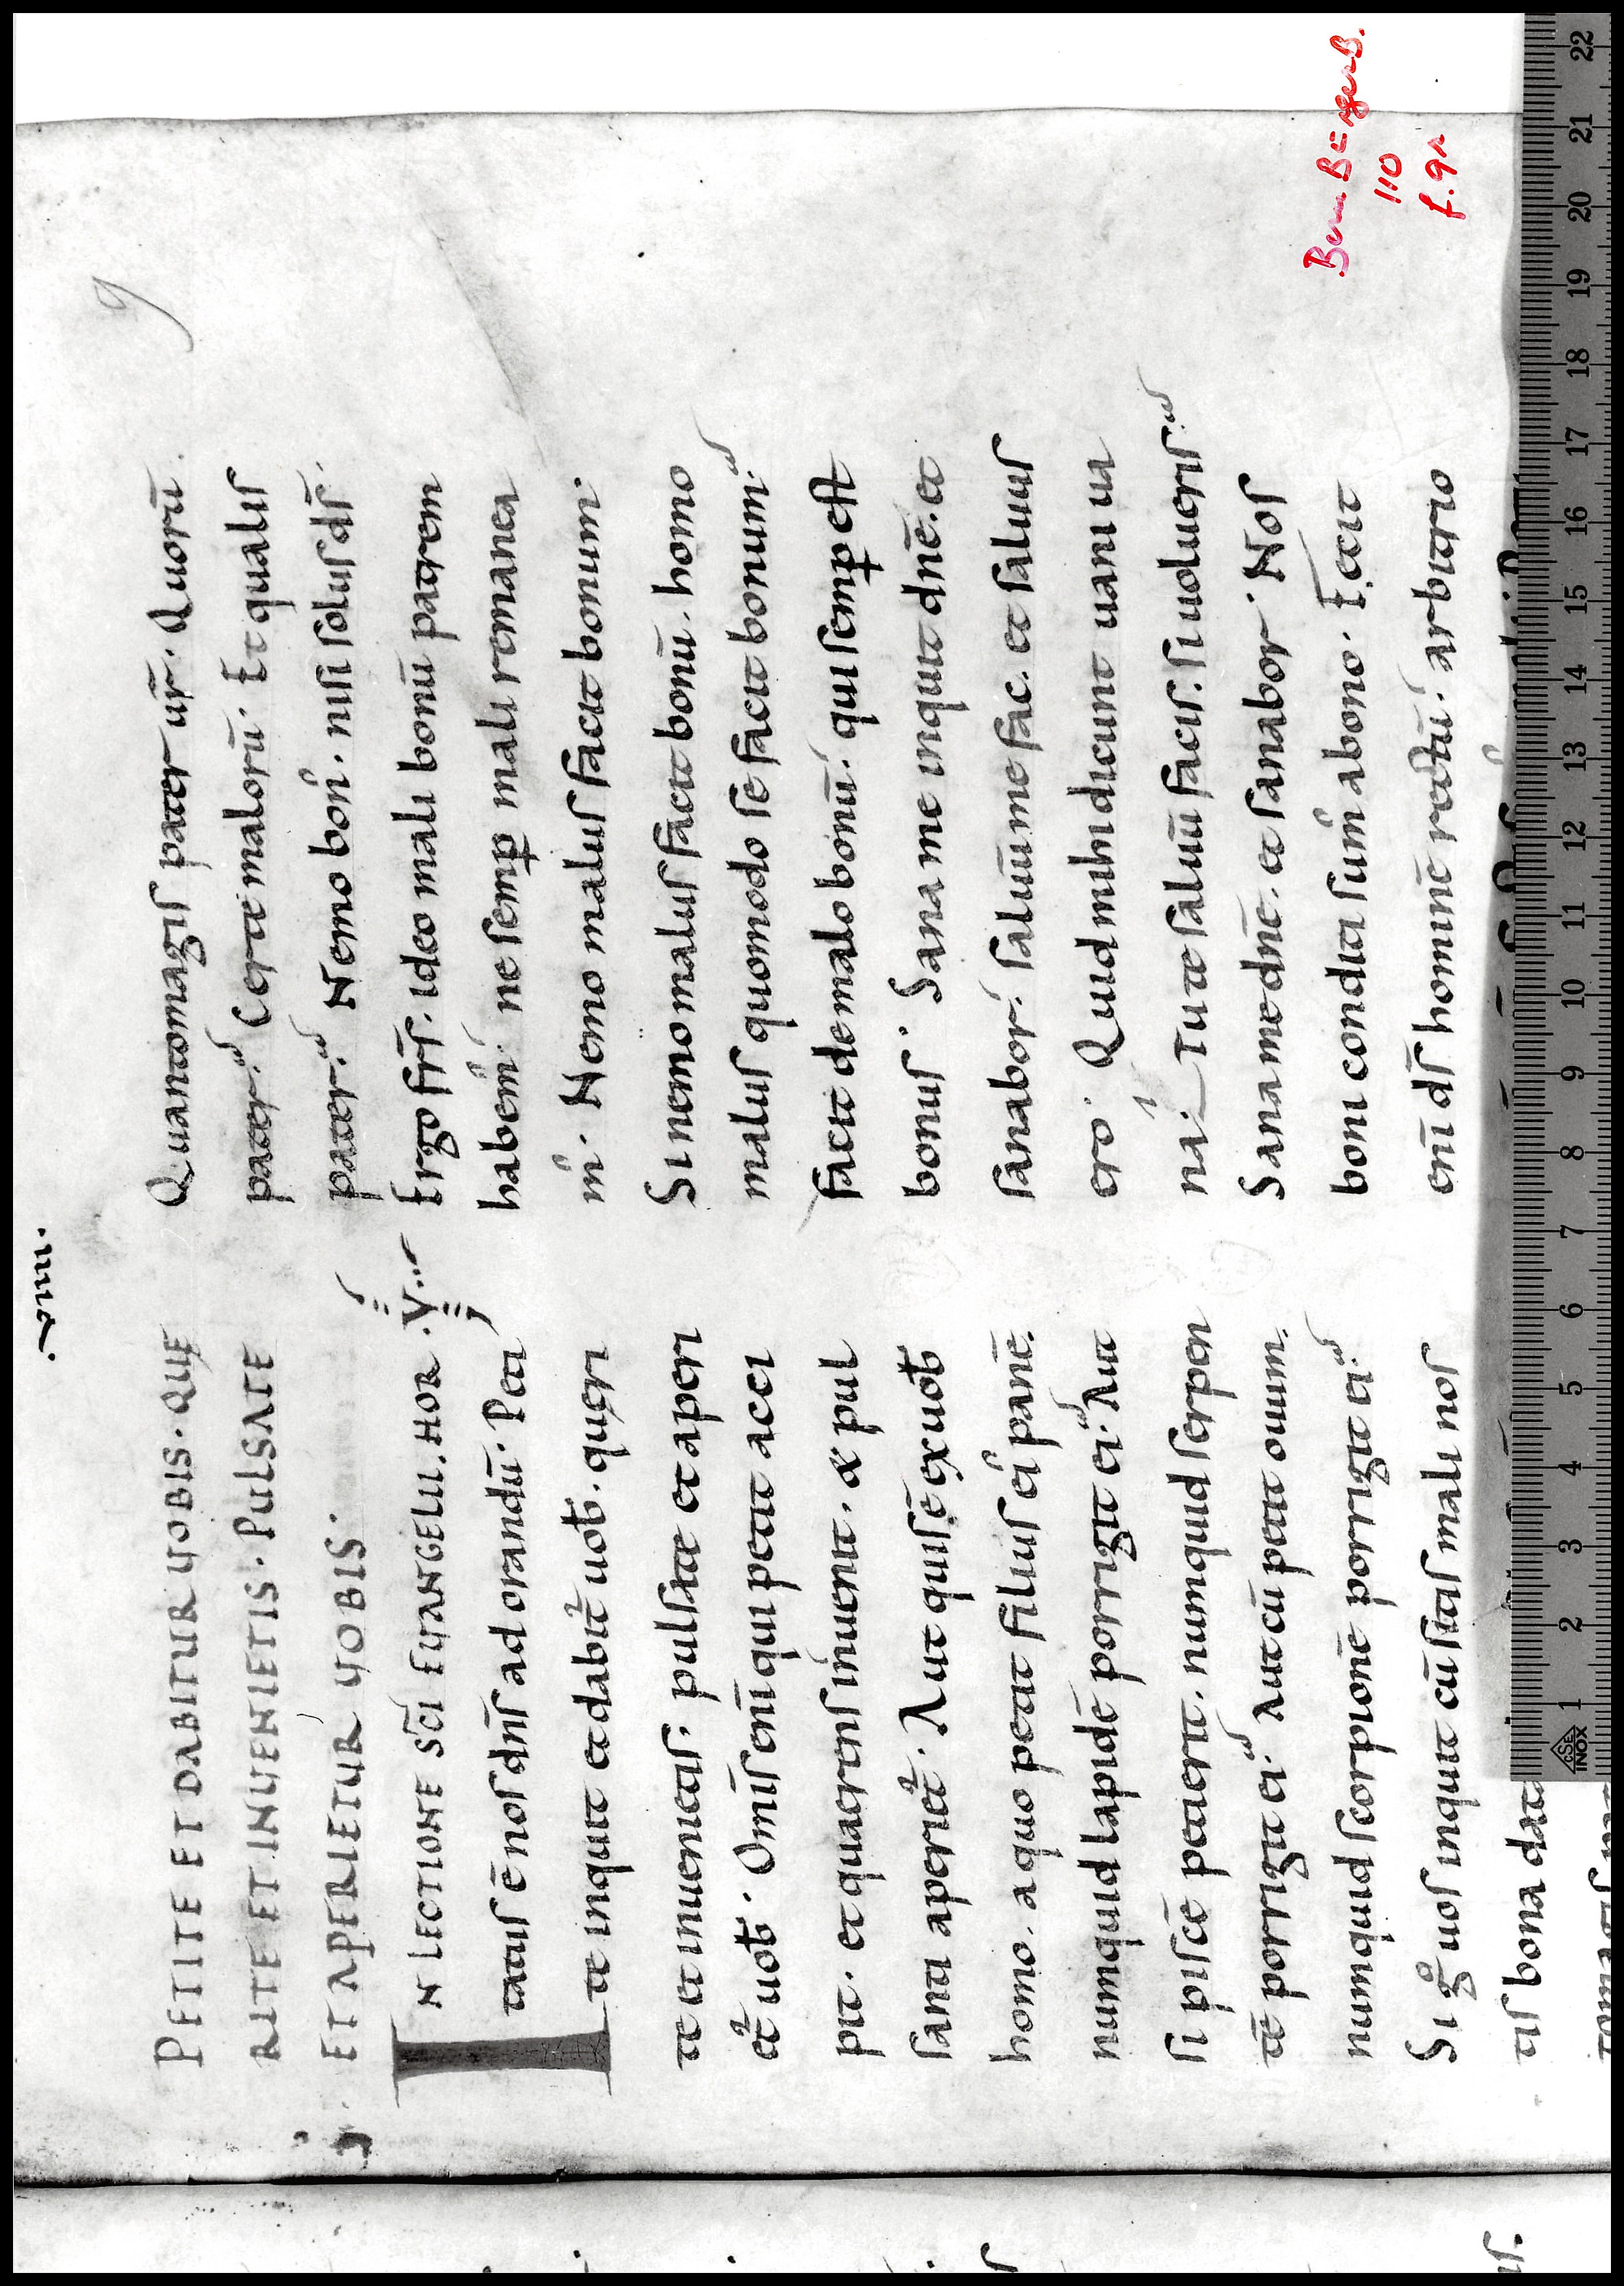 .VIIII.
9
PETITE ET DABITUR UOBIS. QUĘ
RITE ET INUENIETIS. PULSATE
ET APERIETUR UOBIS.
IN LECTIONE SC̄I EUANGELII. HOR
tatus ē nos dn̄s ad orandū. Peti
te inquit et dabit᷑ uob̄. quęri
te et inuenietis. pulsate et aperi
et᷑ uob̄. Omīs enī qui petit acci
pit. et quaerens inuenit. & pul
santi aperiet᷑. Aut quis ē ex uob̄
homo. a quo petit filius ei' panē.
numquid lapidē porrigit ei. Aut
si piscē petierit. numquid serpen
tē porrigit ei. Aut cū petit ouum.
numquid scorpionē porrigit ei.
Si gͦ uos inquit cū sitis mali nos
tis bona data
Quanto magis pater ur̄. Quorū
pater. Certe malorū. Et qualis
pater. Nemo bon'. nisi solus ds̄.
Ergo fr̄s. ideo mali bonū patrem
habem'. ne semp̱ mali remanea
m'. Nemo malus facit bonum.
Si nemo malus facit bonū. homo
malus quomodo se facit bonum.
facit de malo bonū. qui semp̱ est
bonus. Sana me inquit dn̄e. et
sanabor. saluū me fac. et saluus
ero. Quid mihi dicunt uani ua
na. Tu te saluū facis. si uolueris.
Sana me dn̄e. et sanabor. Nos
boni conditi sum' a bono. Fecit
enī ds̄ hominē rectū. arbitrio
110
f. 9r
1 2 3 4 5 6 7 8 9 10 11 12 13 14 15 16 17 18 19 20 21 22
CSE
INOX